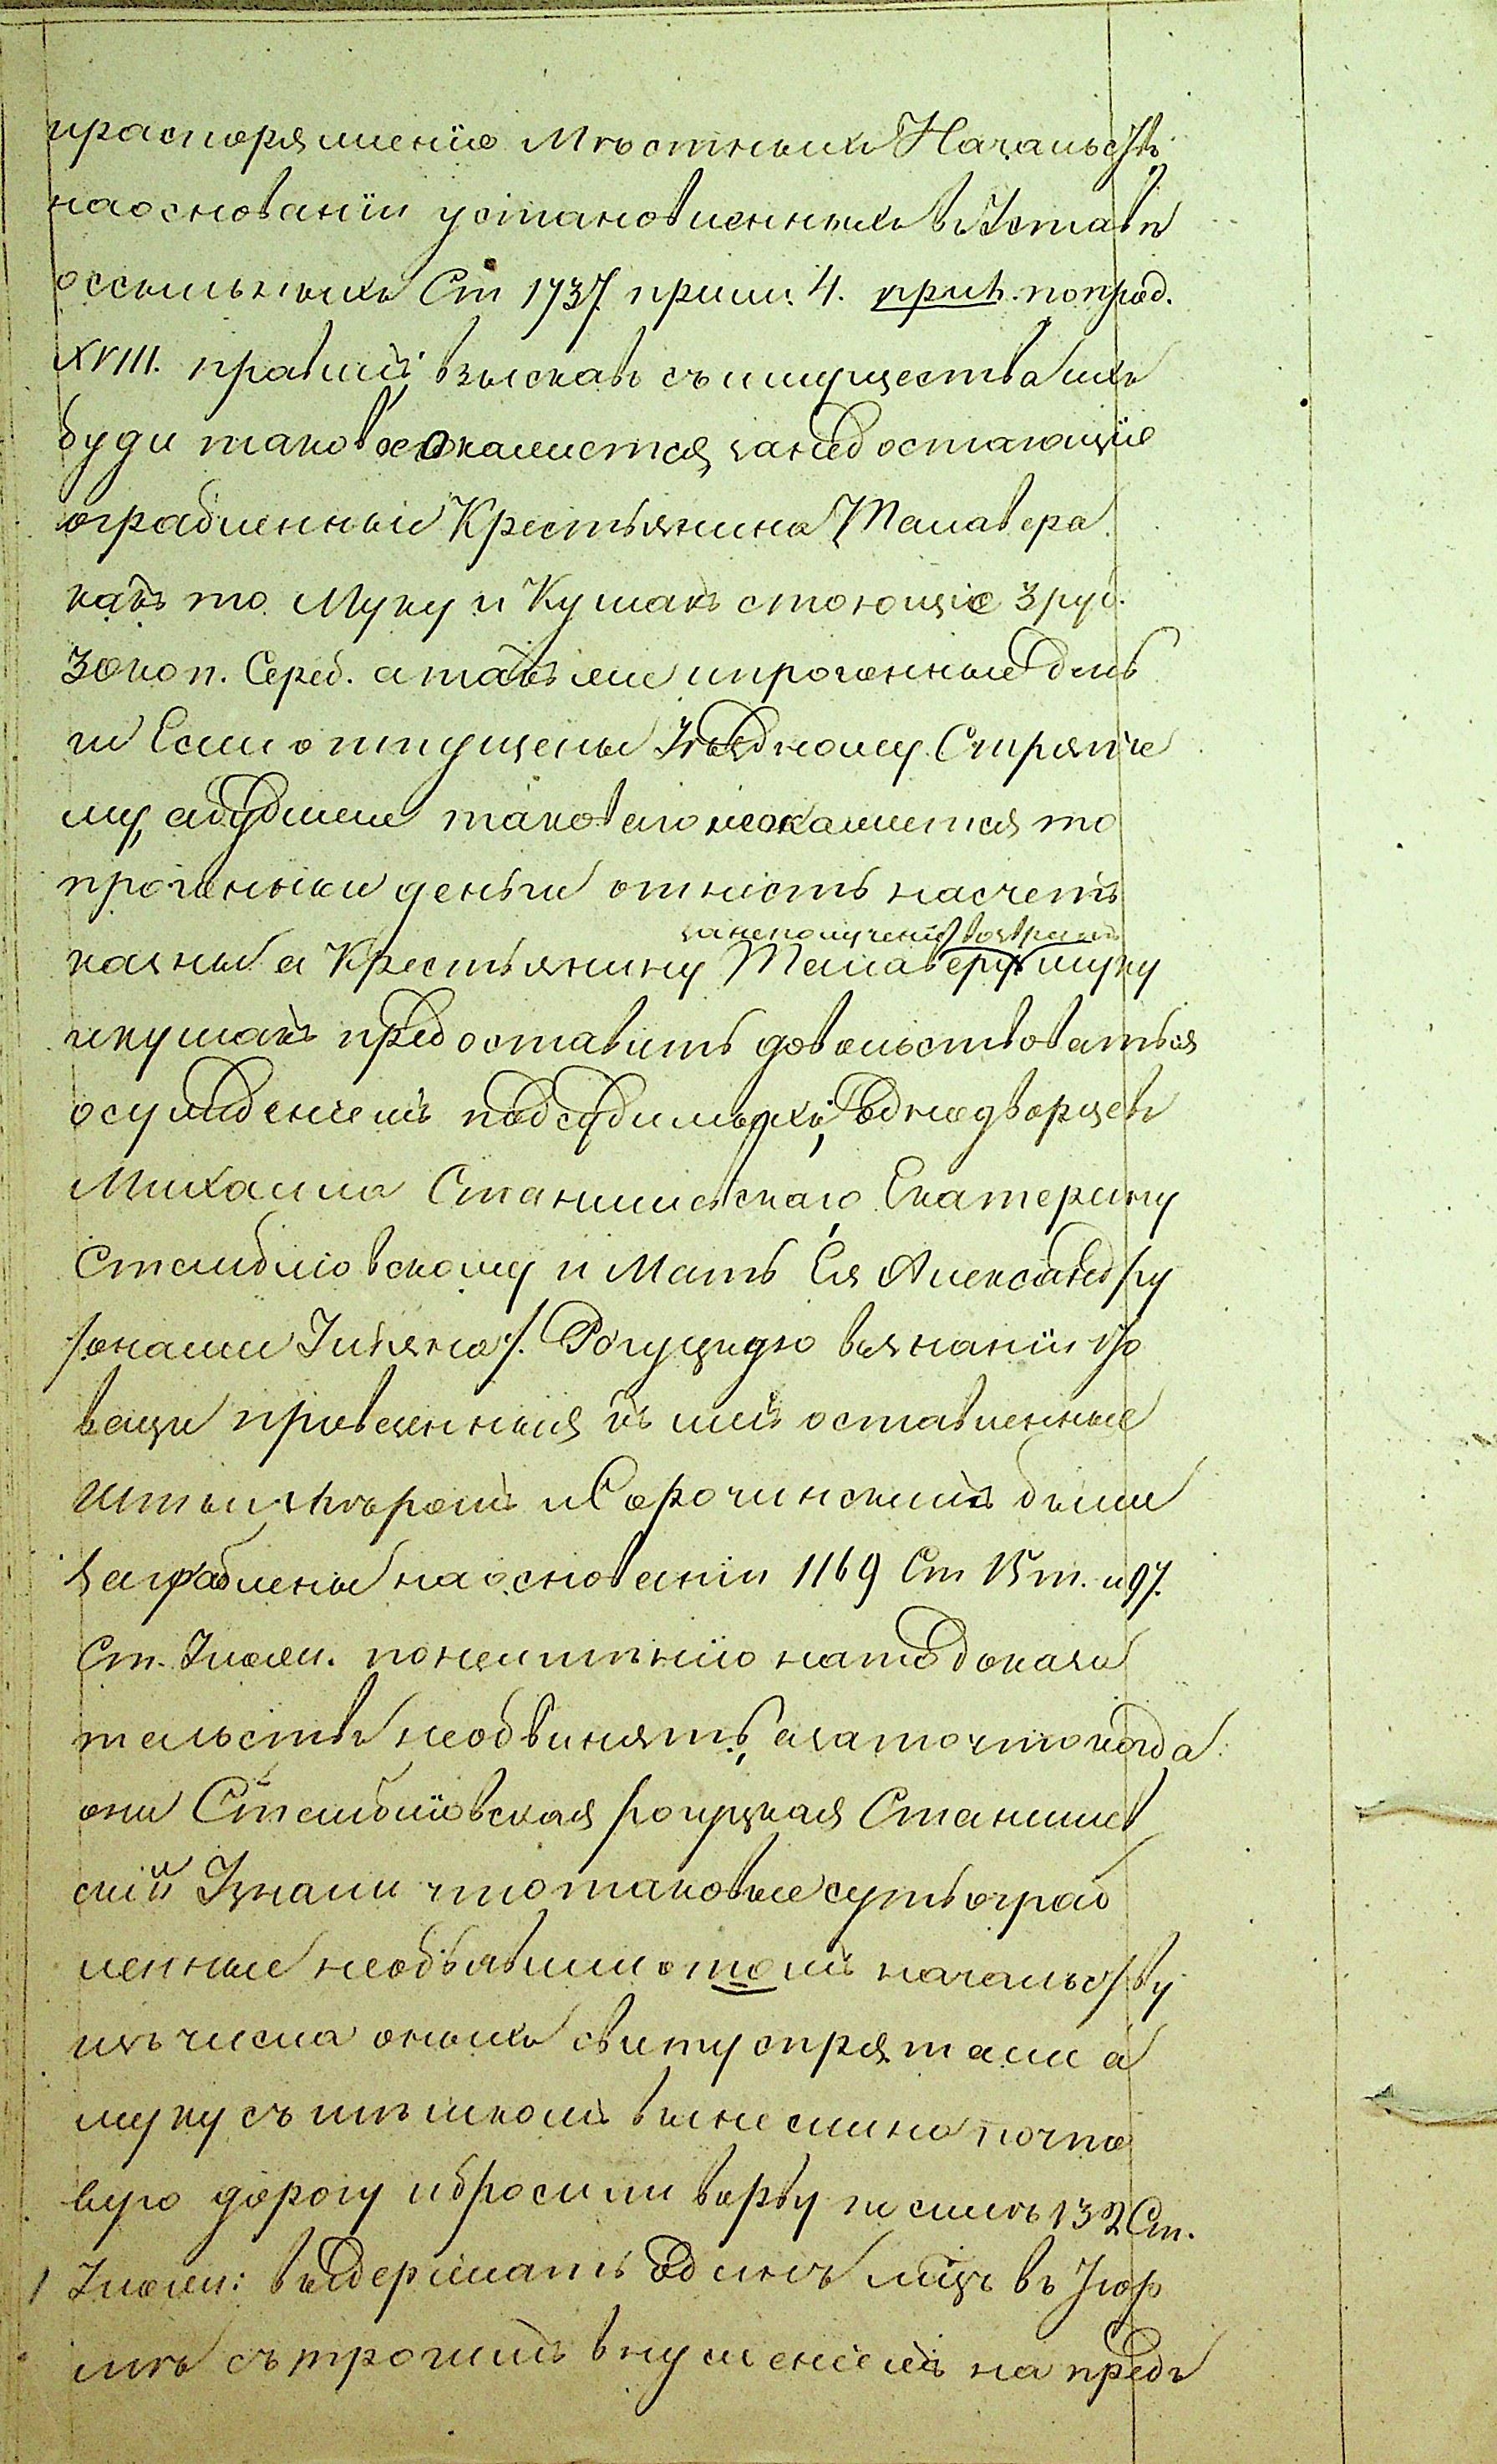 и распоряжение Мѣстныхъ Начальствъ
на основаніи установленныхъ въ Уставѣ
о ссыльныхъ Ст 1737. прим. 4. прил. по прод.
XVIII. правилъ, взыскавъ съ имущества ихъ
буди таковое окажется, за недостающіе
ограбленные Крестьянина
какъ то муку и Кушакъ стоющіе 3 руб.
30 коп. Сереб. а также и прогонные день
ги Если отпущены Уѣздному Стряпче
му, а буди же таковаго неокажется то
прогонныя деньги отнесть на счетъ
казны а Крестьянину
за неполученіе возврата муку
и кушакъ предоставить довольствоваться
осужденіемъ подсудимыхъ, Однодворцевъ
Михаила Станишевскаго, Екатерину
Стембловскому и Мать Ея Александру
/: она же Ульяна :/ Рогуцкую в знаніи что
вещи привезенныя къ нимъ оставленные
и Сорочинскимъ были
заграблены на основаніи 1169 Ст 15 т. и 97.
Ст. Улож. по неимѣнію на то доказа
тельствъ необвинять, а за то что когда
они Стембловская Рогуцкая Станишев
скій Узнали что таковые суть ограб
ленные необъявили о томъ начальству
изъ числа оныхъ свиту спрятали а
муку съ мѣшкомъ вынесли на почто
вую дорогу и бросили в рву по силѣ 132 Ст.
Улож: выдержать однихъ лицъ въ Тюр
мѣ съ строгимъ внушеніемъ на предъ